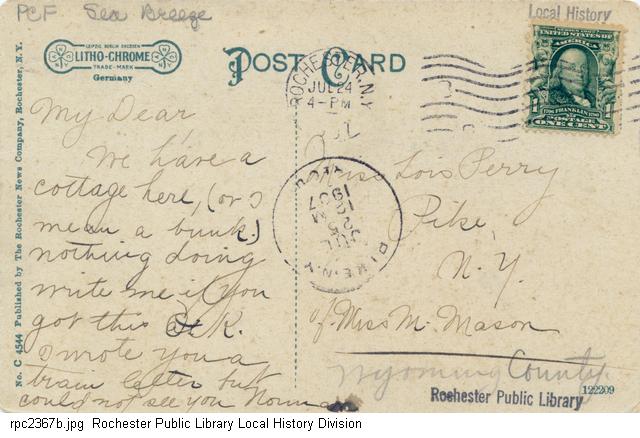 PCF Sea Breeze
Local History
LEIPZIG BERLIN DRESDEN
LITHO-CHROME
TRADE-MARK
Germany
POST CARD
ROCHESTER, N.Y.
JUL 24
4-PM
UNITED STATES OF
AMERICA
FRANKLIN
POSTAGE
ONE CENT
My Dear,
We have a
cottage here, (or I
mean a bunk.)
nothing doing
write me if you
got this O.K.
I wrote you a
train letter but
could not see you Norma
Miss Lois Perry
Pike,
N.Y.
Miss M. Mason
Wyoming County
PIKE, N.Y.
JUL
25
1907
No. C 4544 Published by The Rochester News Company, Rochester, N. Y.
Rochester Public Library
122209
rpc2367b.jpg Rochester Public Library Local History Division